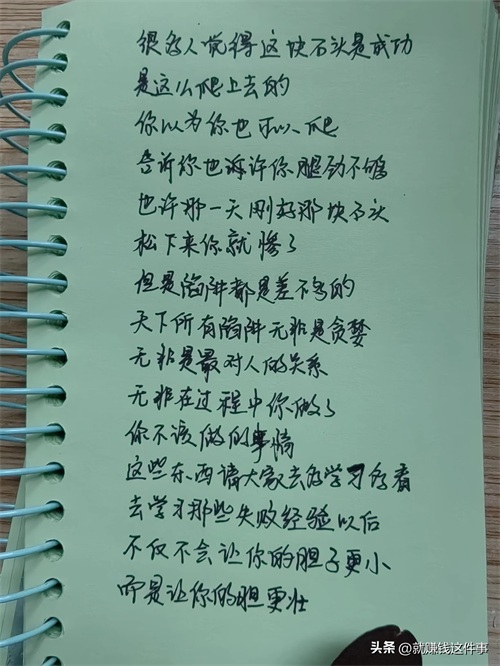 很多人觉得这块石头是成功
是这么爬上去的
你以为你也可以爬
告诉你也许你腿劲不够
也许那一天刚好那块石头
松下来你就惨了
但是陷阱都是差不多的
天下所有陷阱无非是贪婪
无非是最对人的关系
无非在过程中你做了
你不该做的事情
这些东西请大家去多学习多看
去学习那些失败经验以后
不仅不会让你的胆子更小
而是让你的胆更壮
头条 @就赚钱这件事